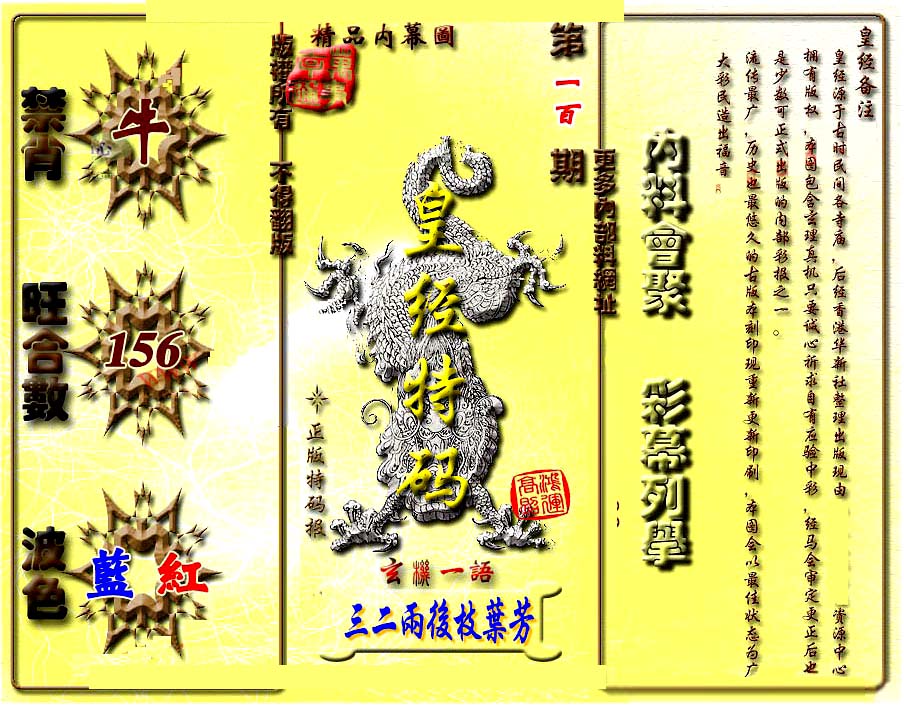 皇经备注
皇经源于古时民间各寺庙，后经香港华新社整理出版现由
资源中心
拥有版权，本图包含玄理真机只要诚心祈求自有应验中彩，经马会审定更正后也
是少数可正式出版的内部彩报之一。
流传最广，历史也最悠久的古版本刻印现重新更新印刷，本图会以最佳状态为广
大彩民造出福音。
內料會聚
彩幕列舉
更多內部料網址
第一百期
精品內幕圖
皇经特码
正版特码报
鴻運
高照
玄機一語
三二兩後枝葉芳
版權所有
不得翻版
禁肖
牛
旺合數
156
波色
藍
紅